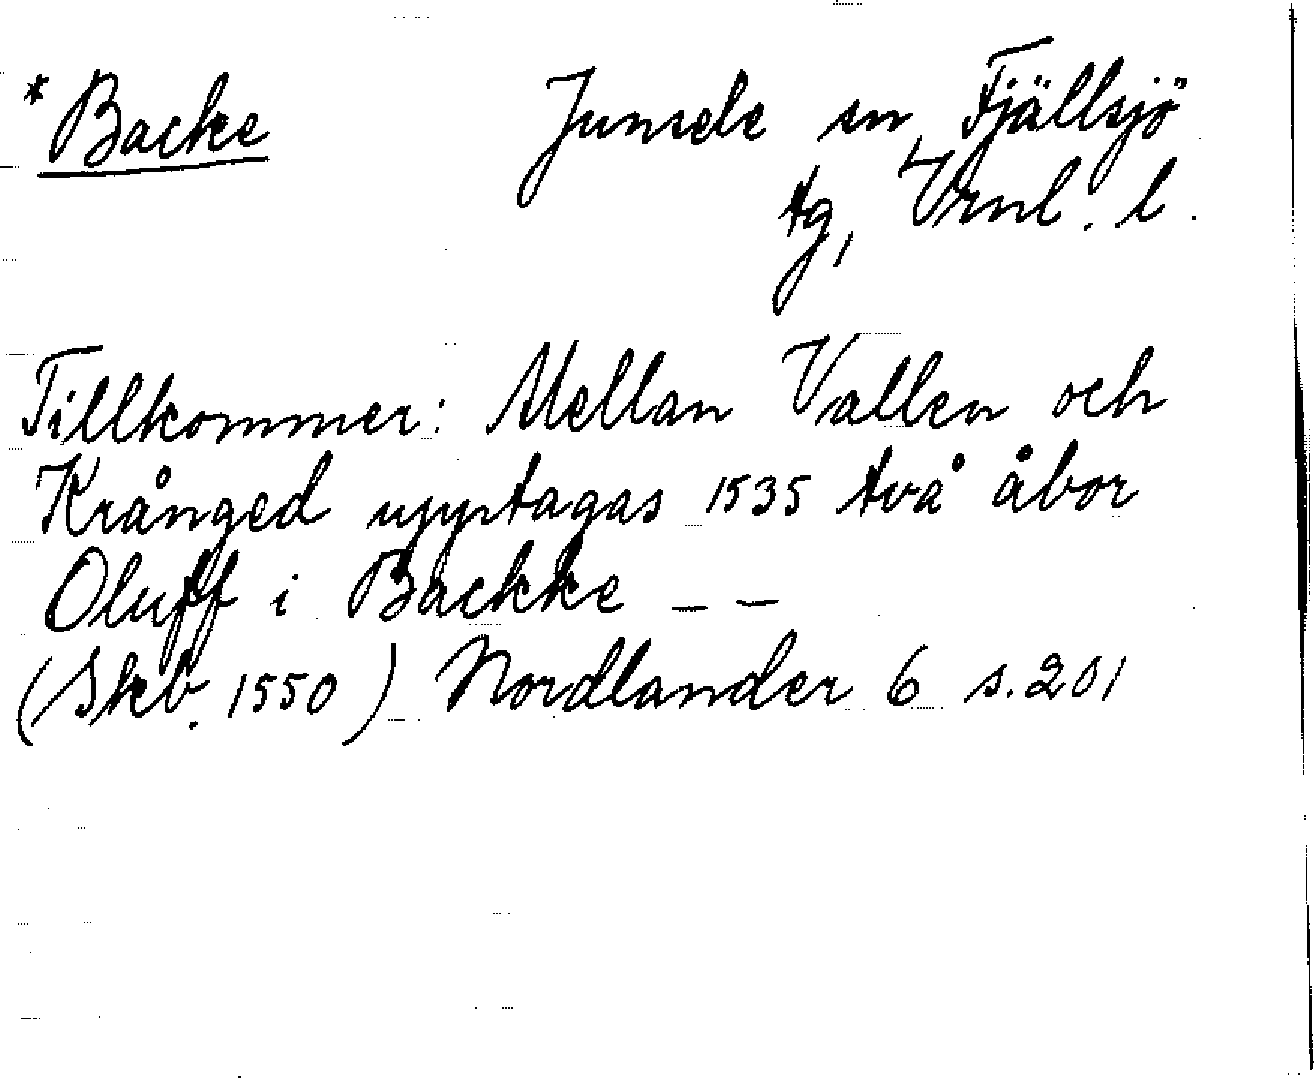 * Backe Junsele sn, Fjällsjö
tg, Vrnl. l.
Tillkommer: Mellan Vallen och
Krånged upptagas 1535 två åbor
Oluff i Backke – –
(Skb. 1550) Nordlander 6 s. 201